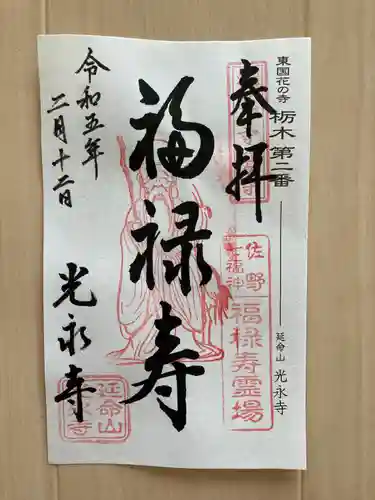 東国花の寺 栃木 第二番
延命山 光永寺
奉拝
佐野
七福神
福禄寿霊場
福禄寿
令和五年
二月十二日
光永寺
延命山
光永寺